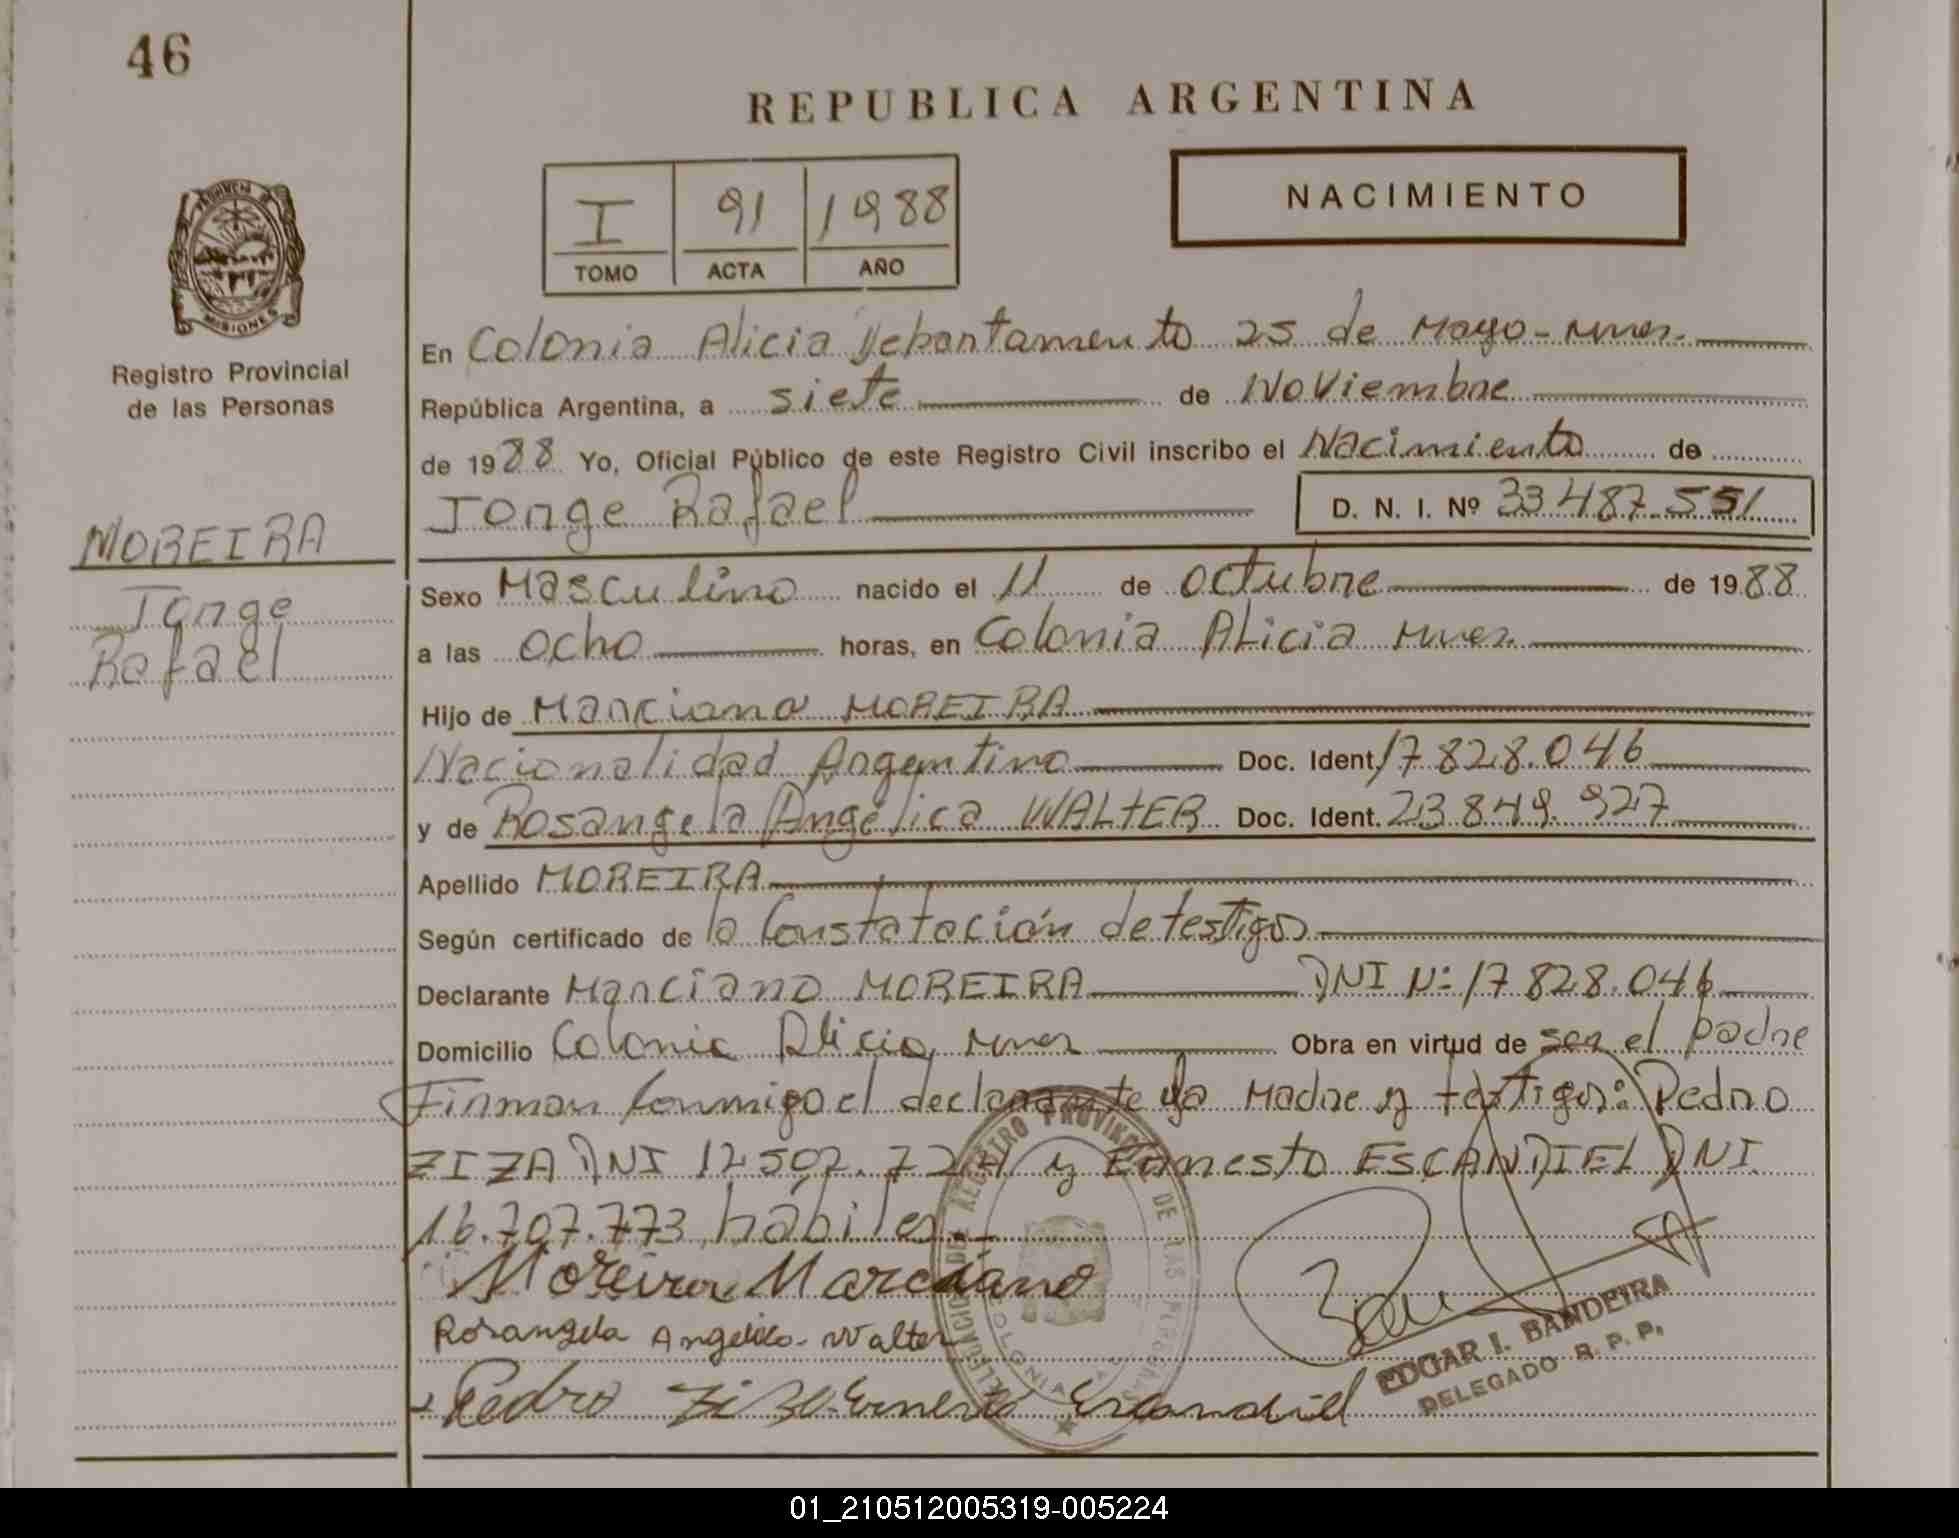 46
REPUBLICA ARGENTINA
I 91 1988
TOMO ACTA AÑO
NACIMIENTO
PROVINCIA DE
MISIONES
Registro Provincial
de las Personas
MOREIRA
Jorge
Rafael
En Colonia Alicia 25 de Mayo - Mnes.
República Argentina, a siete de Noviembre
de 1988 Yo, Oficial Público de este Registro Civil inscribo el Nacimiento de
Jorge Rafael D. N. I. Nº 33.487.551
Sexo Masculino nacido el 11 de octubre de 1988
a las ocho horas, en Colonia Alicia Mnes.
Hijo de Marciano MOREIRA
Nacionalidad Argentino Doc. Ident 17.828.046
y de Rosangela Angélica WALTER Doc. Ident. 23.849.927
Apellido MOREIRA
Según certificado de la Constatación de testigos
Declarante Marciano MOREIRA DNI Nº 17.828.046
Domicilio Colonia Alicia, Mnes Obra en virtud de ser el padre
Firman conmigo el declarante la Madre y testigos: Pedro
ZIZA DNI 12.507. y Ernesto ESCANDIEL DNI
16.707.773 hábiles.
Moreira Marciano
Rosangela Angelica Walter
Pedro Ziza Ernesto Escandiel
DELEGACION DE REGISTRO PROVINCIAL DE LAS PERSONAS
COLONIA
EDGAR I. BANDEIRA
DELEGADO R. P. P.
01_210512005319-005224